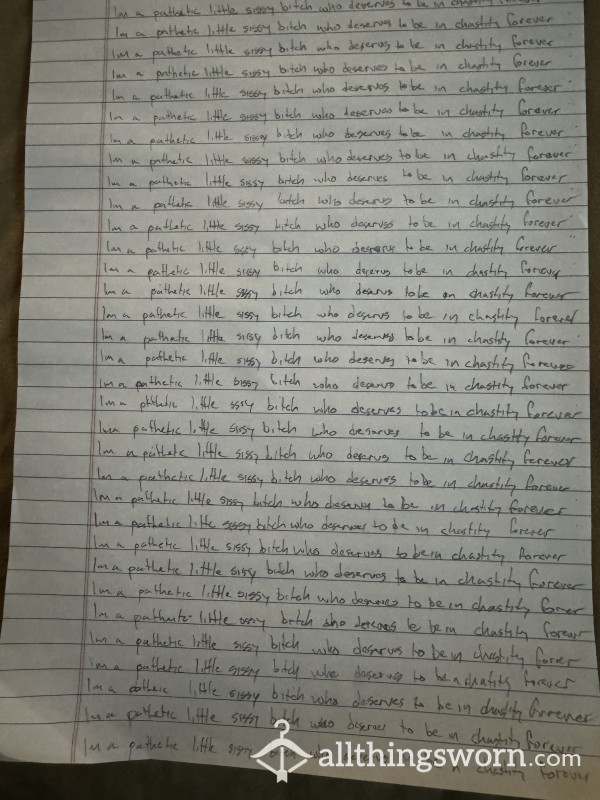 Im a pathetic little sissy bitch who deserves to be in chastity forever
Im a pathetic little sissy bitch who deserves to be in chastity forever
Im a pathetic little sissy bitch who deserves to be in chastity forever
Im a pathetic little sissy bitch who deserves to be in chastity forever
Im a pathetic little sissy bitch who deserves to be in chastity forever
Im a pathetic little sissy bitch who deserves to be in chastity forever
Im a pathetic little sissy bitch who deserves to be in chastity forever
Im a pathetic little sissy bitch who deserves to be in chastity forever
Im a pathetic little sissy bitch who deserves to be in chastity forever
Im a pathetic little sissy bitch who deserves to be in chastity forever
Im a pathetic little sissy bitch who deserves to be in chastity forever
Im a pathetic little sissy bitch who deserves to be in chastity forever
Im a pathetic little sissy bitch who deserves to be in chastity forever
Im a pathetic little sissy bitch who deserves to be on chastity forever
Im a pathetic little sissy bitch who deserves to be in chastity forever
Im a pathetic little sissy bitch who deserves to be in chastity forever
Im a pathetic little sissy bitch who deserves to be in chastity forever
Im a pathetic little sissy bitch who deserves to be in chastity forever
Im a pthtetic little sssy bitch who deserves to be in chastity forever
Im a pathetic little sissy bitch who deserves to be in chastity forever
Im a pathetic little sissy bitch who deserves to be in chastity forever
Im a pathetic little sissy bitch who deserves to be in chastity forever
Im a pathetic little sissy bitch who deserves to be in chastity forever
Im a pathetic little sissy bitch who deserves to be in chastity forever
Im a pathetic little sissy bitch who deserves to be in chastity forever
Im a pathetic little sissy bitch who deserves to be in chastity forever
Im a pathetic little sissy bitch who deserves to be in chastity forever
Im a little sssy bitch who be in chastity forever
Im a pathetic little sissy bitch who deserves to be in chastity forever
Im a pathetic little sissy bitch who deserves to be chatity forever
Im a little sissy bitch who deserves to be in chastity forever
Im a pathetic little sissy bitch who deserves to be in chastity forever
Im a pathetic little sissy chastity forever
allthingsworn.com